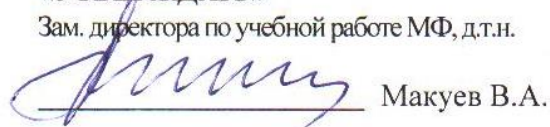 Зам. директора по учебной работе МФ, д.т.н.
Макуев В.А.